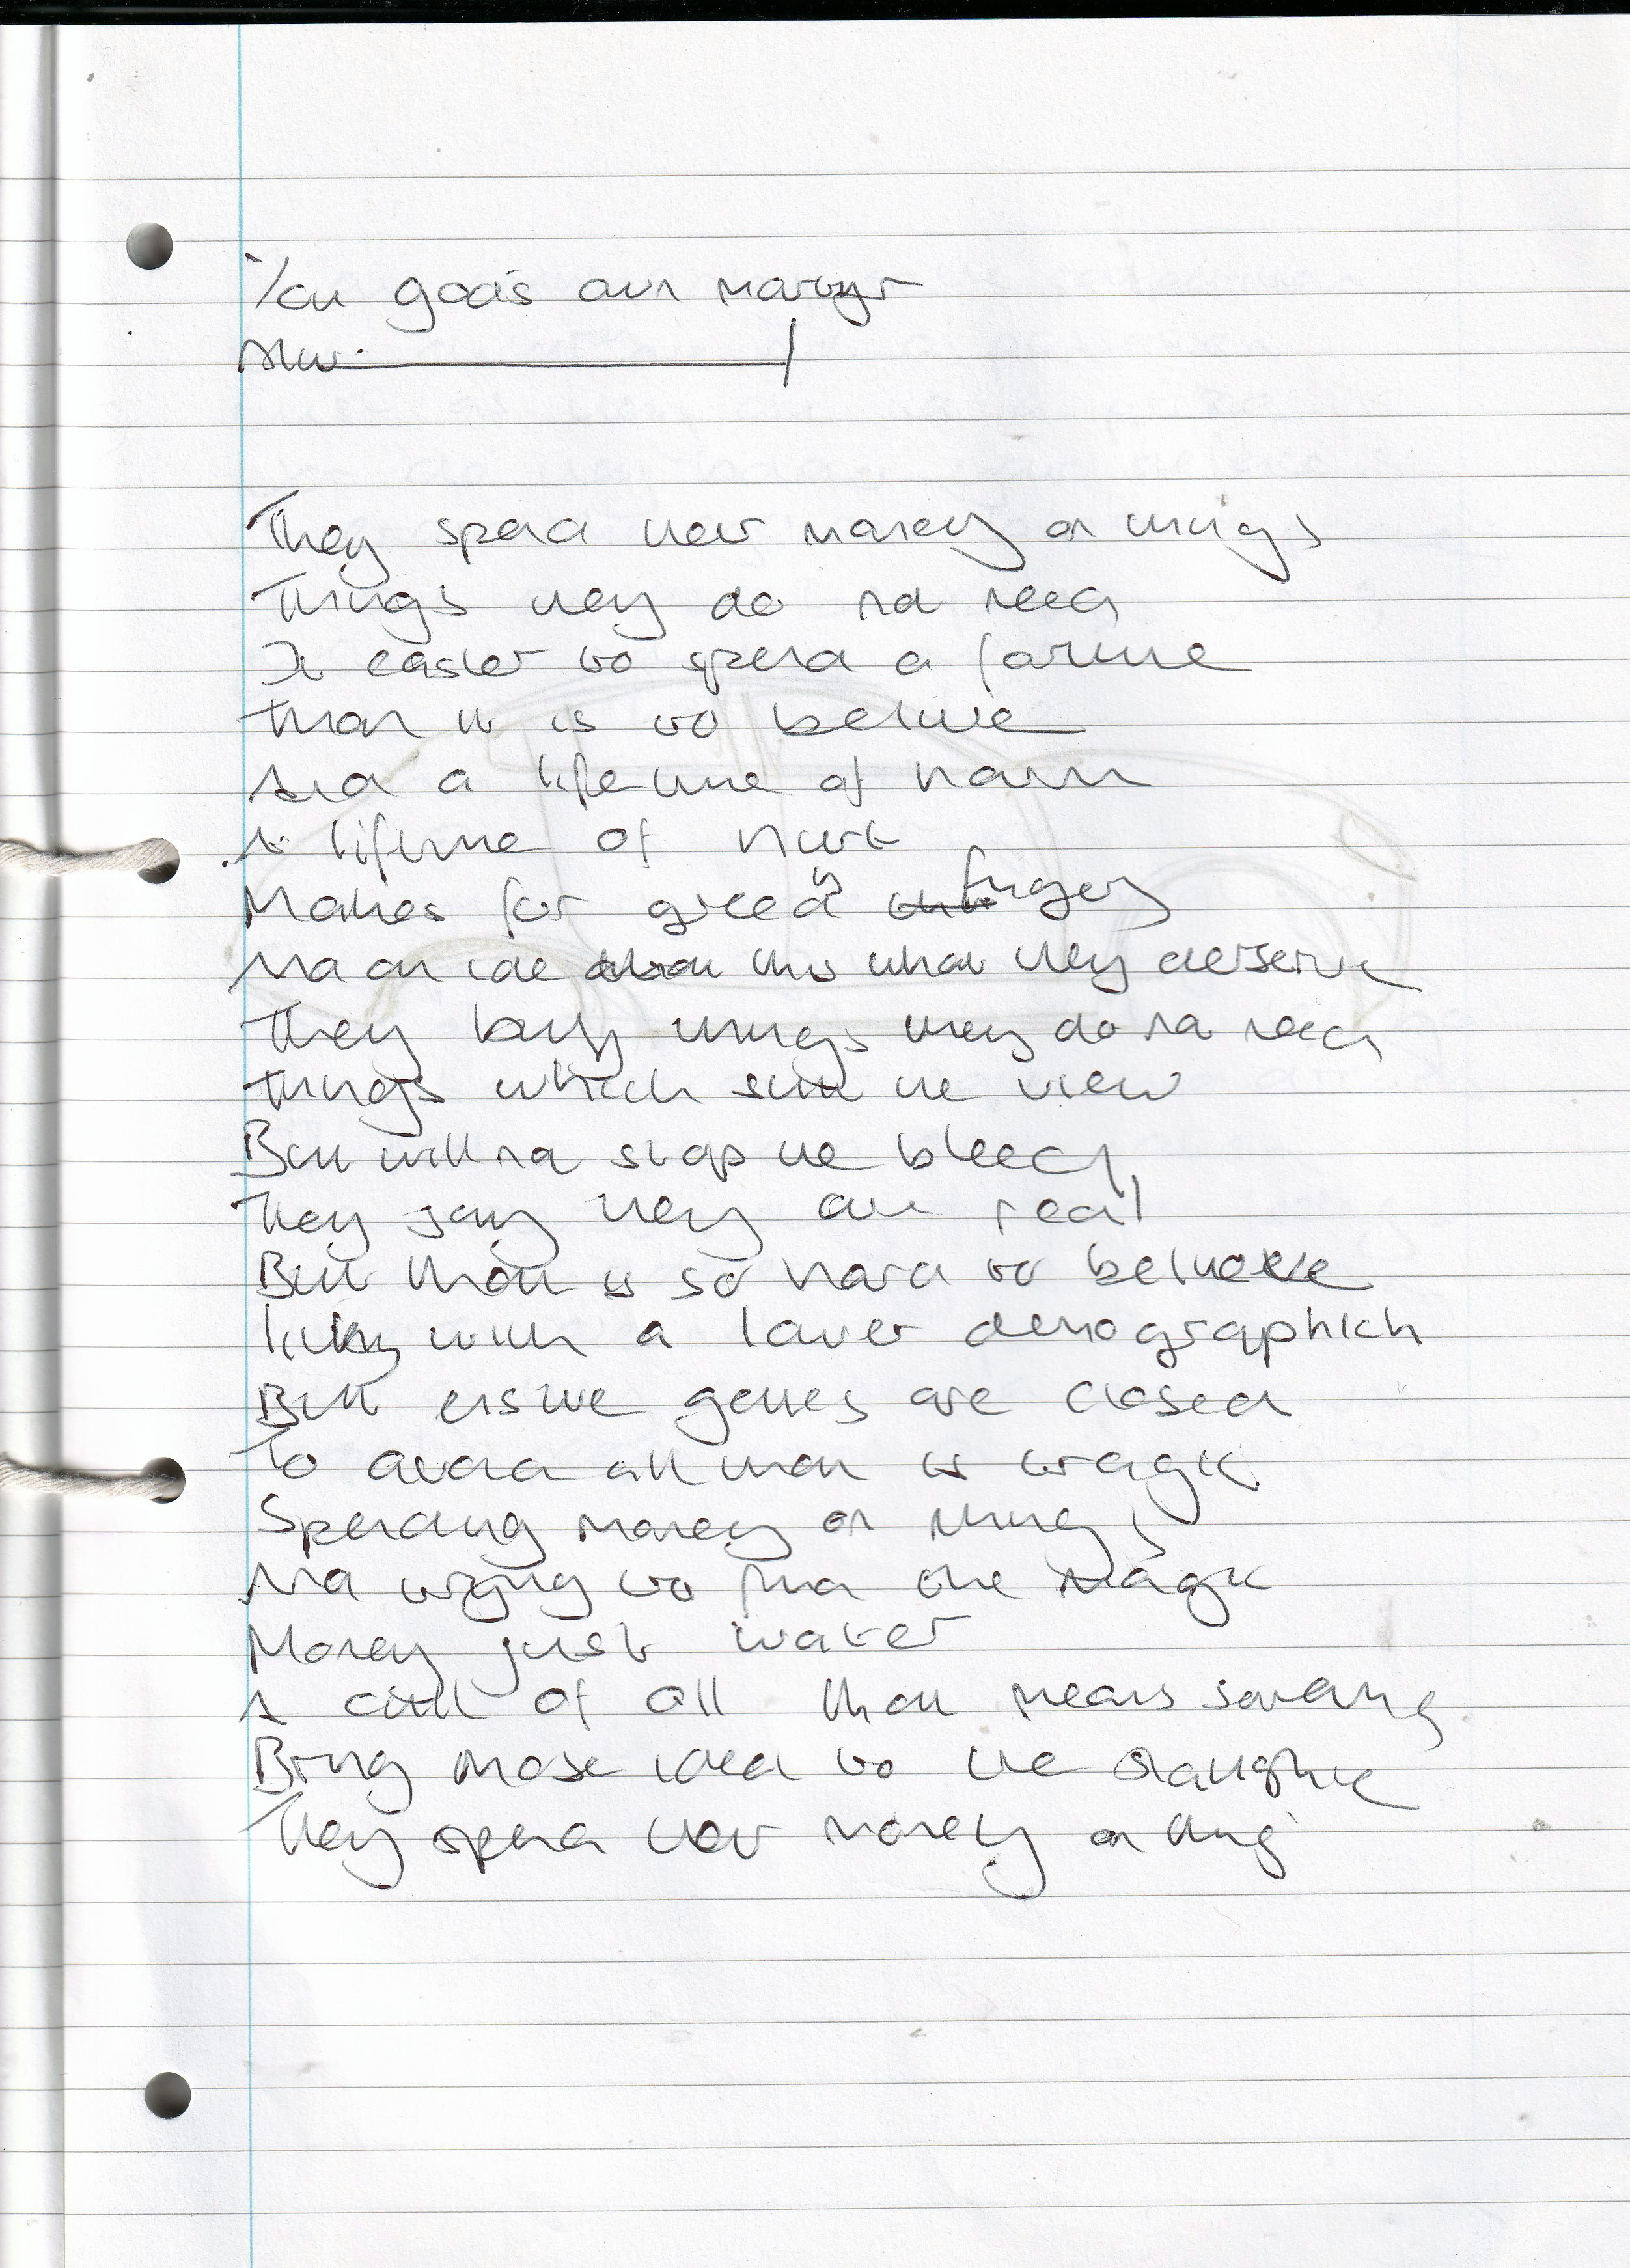 You god's own martyr
They spend their money on things
Things they do not need
It easier to spend a fortune
Than it is to believe
And a lifetime of harm
A lifetime of hurt
Makes for greedy fingers
Not an ide this what they deserve
They buy things they do not need
Things which suit the view
But will not stop the bleed
They say they are real
But that is so hard to believe
living with a lower demographich
But ensure gates are closed
To avoid all that is tragic
Spending money on things
Not trying to find the magic
Money just water
A cull of all that means saving
Bring those idea to the slaughte
They spend their money on thing